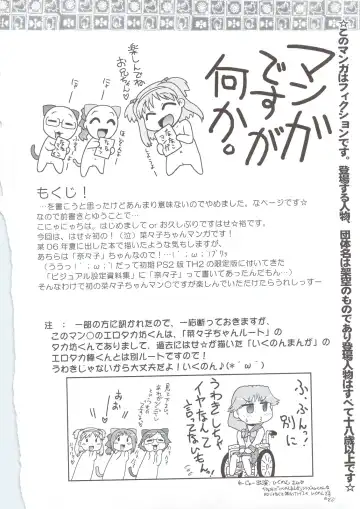 ☆このマンガはフィクションです。登場する人物、団体名は架空のものであり登場人物はすべて十八歳以上です☆
マンガ
ですが
何か。
楽しんでね
お兄ちゃん♡
もくじ！
…を書こうと思ったけどあんまり意味ないのでやめました、なページです☆
なので前書きとゆうことで…
こにゃにゃちは。はじめまして or お久しぶりですはせ☆裕です。
今回は、はせ☆初の！（泣）菜々子ちゃんマンガです！
某０６年夏に出した本で描いたような気もしますが、
あちらは「奈々子」ちゃんなので！（；´ω；）ﾌﾞﾜｯ
（ううっ！´；ω；`｜だって初期ＰＳ２版ＴＨ２の限定版に付いてきた
「ビジュアル設定資料集」に「奈々子」って書いてあったんだもん…）
そんなわけで初の菜々子ちゃんマン〇ですが楽しんでいただけたらうれしっスー
注 ： 一部の方に訊かれたので、一応断っておきますが、
このマン〇のエロタカ坊くんは、「菜々子ちゃんルート」の
タカ坊くんでありまして、過去にはせ☆が描いた「いくのんまんが」の
エロタカ棒くんとは別ルートですので！
うわきじゃないから大丈夫だよ！いくのん♪(*´ω｀)
ふ、ぶんっ！
別に
うわきしちゃ
イヤなんて
言ってない
もん。